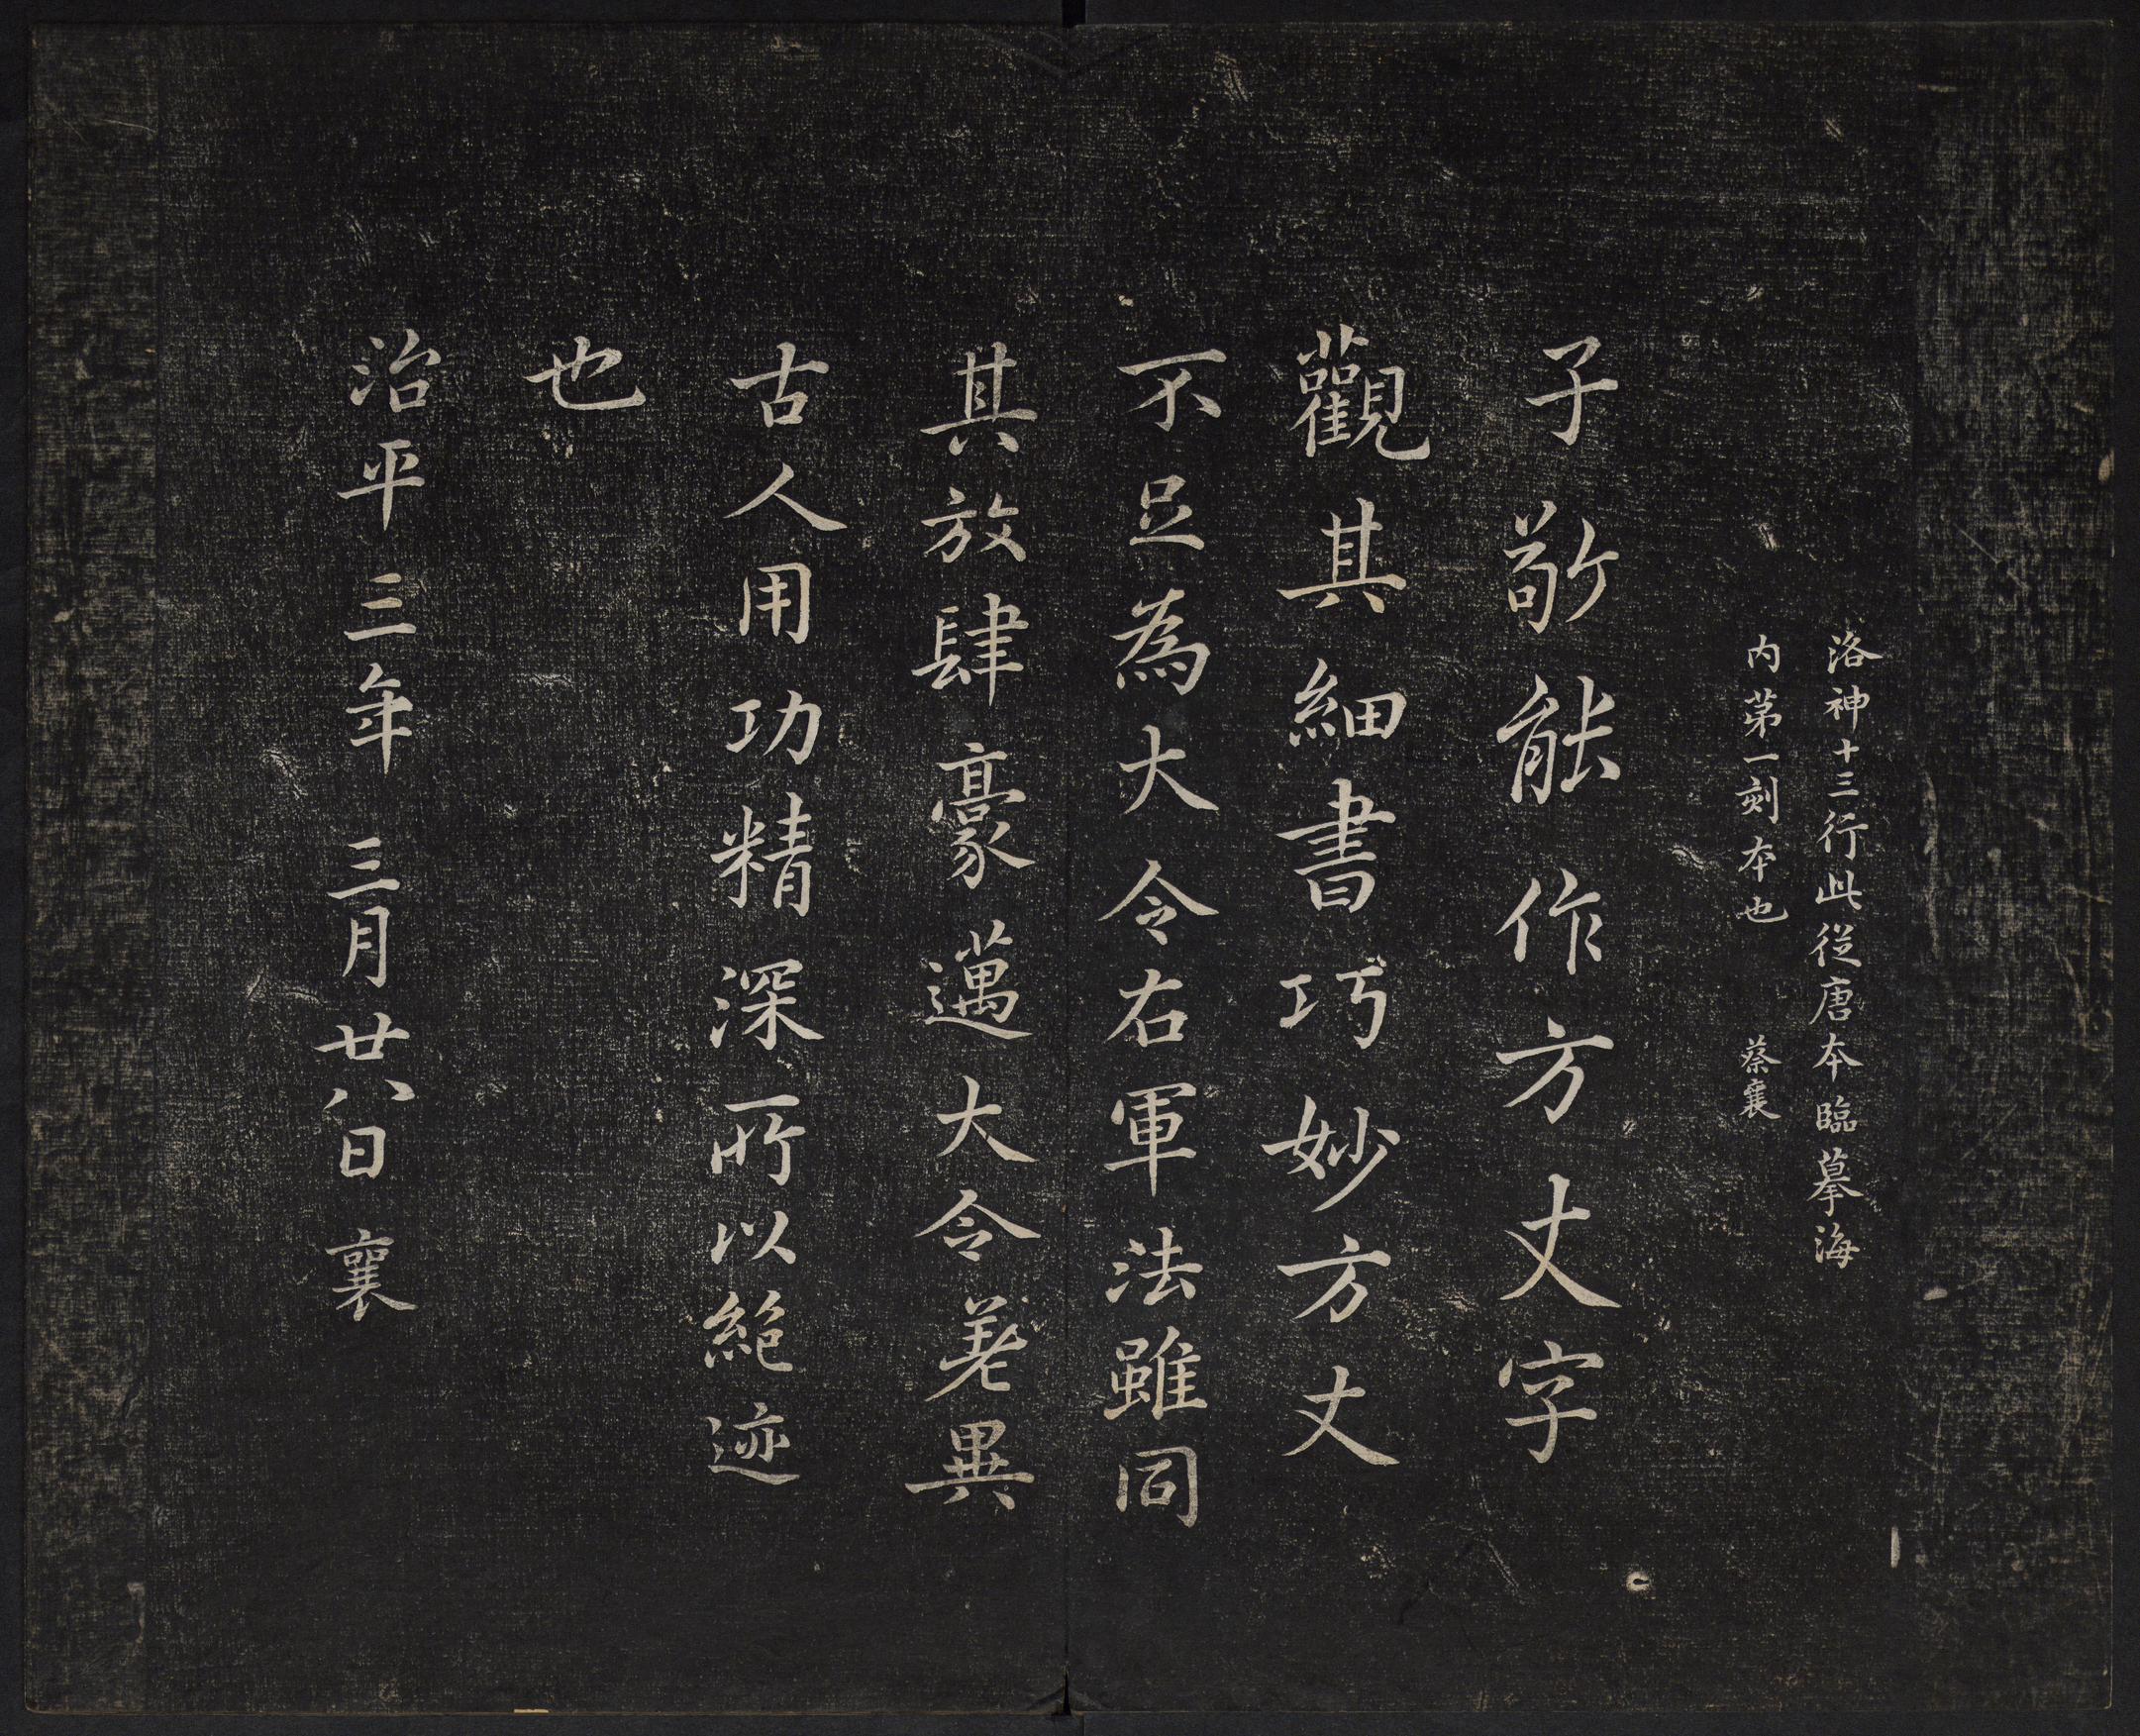 洛神十三行此從唐本臨摹海
内第一刻本也 蔡襄
子敬能作方丈字
觀其細書巧妙方丈
不足為大令右軍法雖同
其放肆豪邁大令差異
古人用功精深所以絕迹
也
治平三年三月廿八日襄